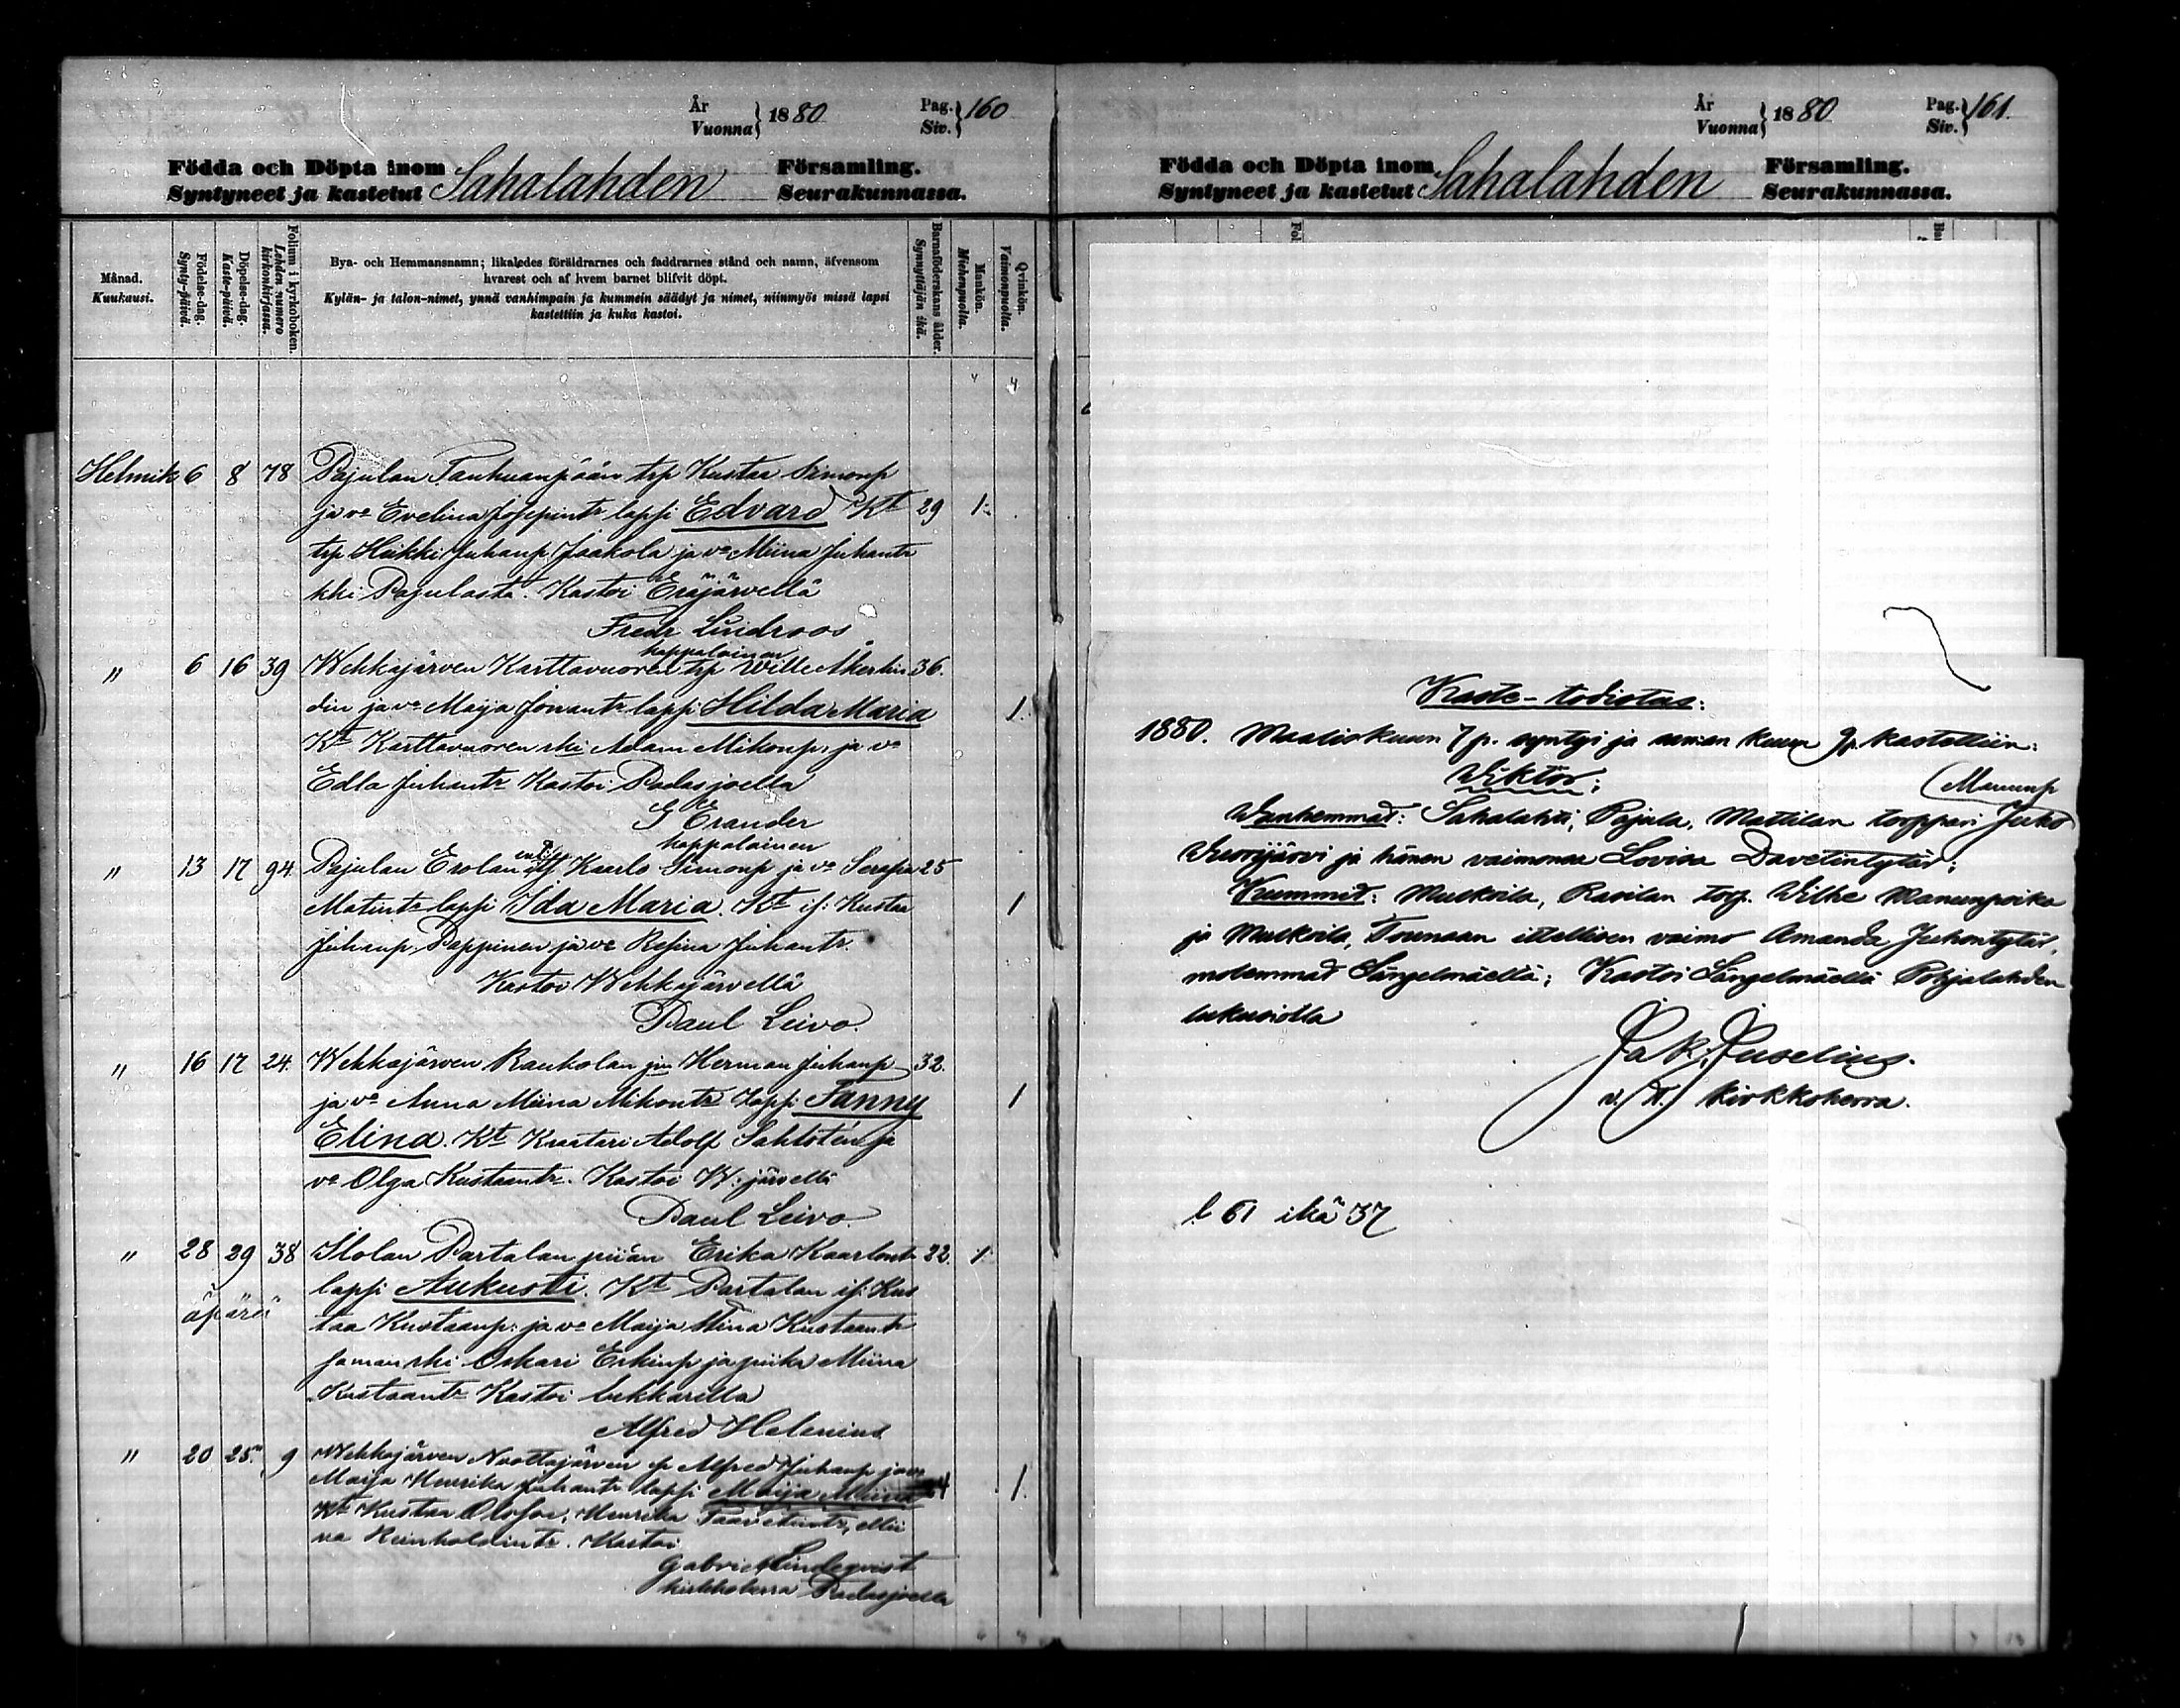 År
Vuonna } 1880 Pag.
Siv. } 160
Födda och Döpta inom Sahalahden Församling.
Syntyneet ja kastetut Seurakunnassa.
Månad.
Kuukausi.
Födelse-dag.
Synty-päivä.
Döpelse-dag.
Kaste-päivä.
Folium i kyrkoboken.
Lehden numero kirkonkirjassa.
Bya- och Hemmansnamn; likaledes föräldrarnes och faddrarnes stånd och namn, äfvensom
hvarest och af hvem barnet blifvit döpt.
Kylän- ja talon-nimet, ynnä vanhimpain ja kummein säädyt ja nimet, niinmyös missä lapsi
kastettiin ja kuka kastoi.
Barnaföderskans ålder.
Synnyttäjän ikä.
Mankön.
Miehenpuolta.
Qvinkön.
Vaimonpuolta.
Helmik 6 8 78 Pajulan Tanhuanpään trp Kustaa Simonp
ja vo Evelina Josepintr lapsi Edvard Kt 29 1
trp Heikki Juhanp Jaakola ja vo Miina Juhantr
kki Pajulasta. Kastoi Eräjärvellä
Fredr Lindroos
kappalainen
" 6 16 39 Wehkajärven Karttavuoren trp Wille Åkerlun 36.
din ja vo Maija Jonantr lapsi Hilda Maria 1.
Kt Karttavuoren rki Adam Mikonp. ja vo
Edla Juhantr Kastoi Padasjoella
G Erander
kappalainen
" 13 17 94 Pajulan Erolan Kaarlo Simonp ja vo Serafia 25
Matintr lapsi Ida Maria. Kt if: Kustaa 1
Juhanp. Pappinen ja vo Refina Juhantr.
Kastoi Wehkajärvellä
Paul Leivo.
" 16 17 24. Wehkajärven Raukolan Herman Juhanp 32.
ja vo Anna Miina Mikontr lapsi Fanny 1
Elina. Kt Kraatari Adolf Sahlstén ja
vo Olga Kustaantr. Kastoi W:järvellä
Paul Leivo.
" 28 29 38 Ilolan Partalan piian Erika Kaarlontr 22. 1
äpärä
lapsi Aukusti. Kt Partalan if: Kus
taa Kustaanp: ja vo Maija Miina Kustaantr
saman rki Oskari Erkinp ja piika Miina
Kustaantr Kastoi lukkarilla
Alfred Helenius
" 20 25 9 Wehkajärven Nuottajärven Alfred Juhanp ja vo
Marja Henrika Juhantr lapsi Maija Miina 1.
Kt Kustaa Olofsn, Henrika Taavetintr, Mii
na Reinholdintr. Kastoi
Gabriel Lindeqvist
kirkkoherra Padasjoella
År
Vuonna } 1880 Pag.
Siv. } 161.
Födda och Döpta inom Sahalahden Församling.
Syntyneet ja kastetut Seurakunnassa.
Kaste-todistus:
1880. Maaliskuun 7 p. syntyi ja saman kuun 9 p. kastettiin:
Viktor;
(Manunp
Wanhemmat: Sahalahti, Pajula, Mattilan torppari Juho
Vuorijärvi ja hänen vaimonsa Lovisa Davetintytär;
Kummit: Mutkoila, Rasilan torp. Wilhe Manunpoika
ja Mutkoila, Tounaan itellisen vaimo Amanda Juhontytär,
molemmat Längelmäeltä; Kastoi Längelmäellä Pohjalahden
lukusiolla
Jak. Juselius.
v. t. kirkkoherra.
l 61 ikä 37